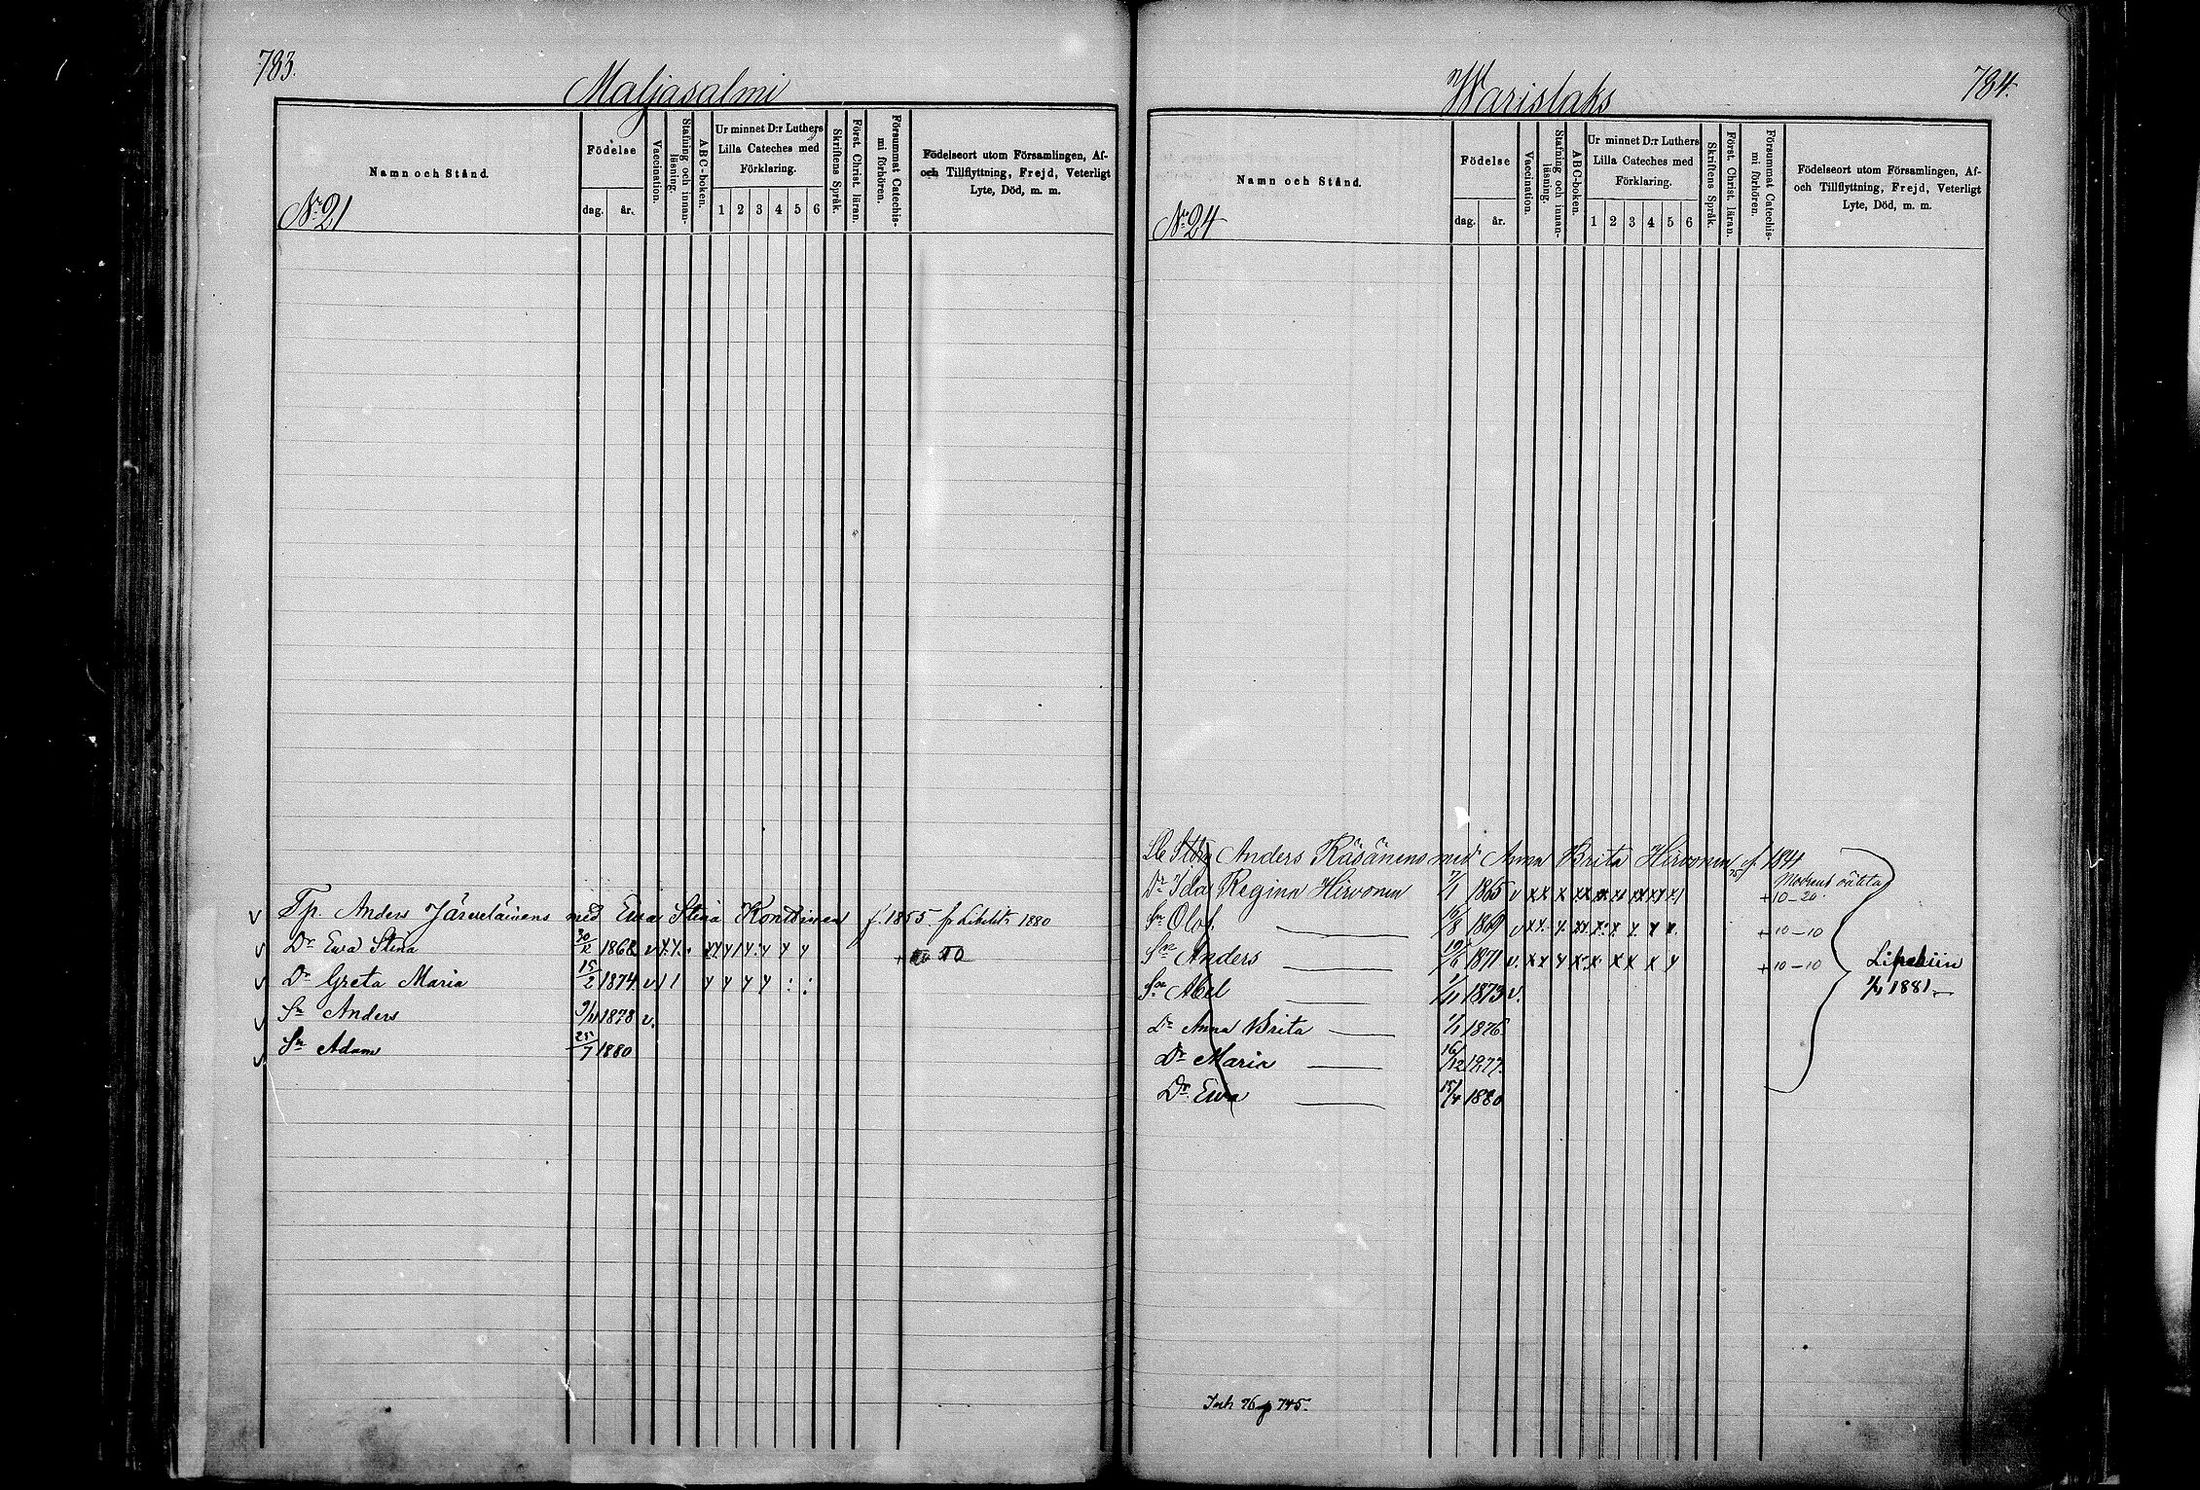 783.
Maljasalmi
Namn och Stånd.
Födelse
dag. år.
Vaccination.
Stafning och innanläsning.
ABC-boken.
Ur minnet D:r Luthers Lilla Cateches med Förklaring.
1 2 3 4 5 6
Skriftens Språk.
Först. Christ. läran.
Försummat Catechismi förhören.
Födelseort utom Församlingen, Af- och Tillflyttning, Frejd, Veterligt Lyte, Död, m. m.
No 21
Tp. Anders Järveläinens med Ewa Stina Kontinen f. 1855. fr Libelits 1880
Dr Ewa Stina 30/12 1868 v
Dr Greta Maria 15/2 1874 v
Sn Anders 1878 v.
Sn Adam 25/7 1880
784.
Warislaks
Namn och Stånd.
Födelse
dag. år.
Vaccination.
Stafning och innanläsning.
ABC-boken.
Ur minnet D:r Luthers Lilla Cateches med Förklaring.
1 2 3 4 5 6
Skriftens Språk.
Först. Christ. läran.
Försummat Catechismi förhören.
Födelseort utom Församlingen, Af- och Tillflyttning, Frejd, Veterligt Lyte, Död, m. m.
No 24
Anders Räsänens med Anna Brita Hirvonen f. 1844
Dr Ida Regina Hirvonen 7/1 1865 v + 10-20.
Sn Olof 16/8 1869 v + 10-10
Sn Anders 19/6 1871 v. + 10-10
Sn Abel 1873 v.
Dr Anna Brita 1/1 1876
Dr Maria 16/12 1877.
Dr Ewa 15/4 1880
1881
76 p 745.